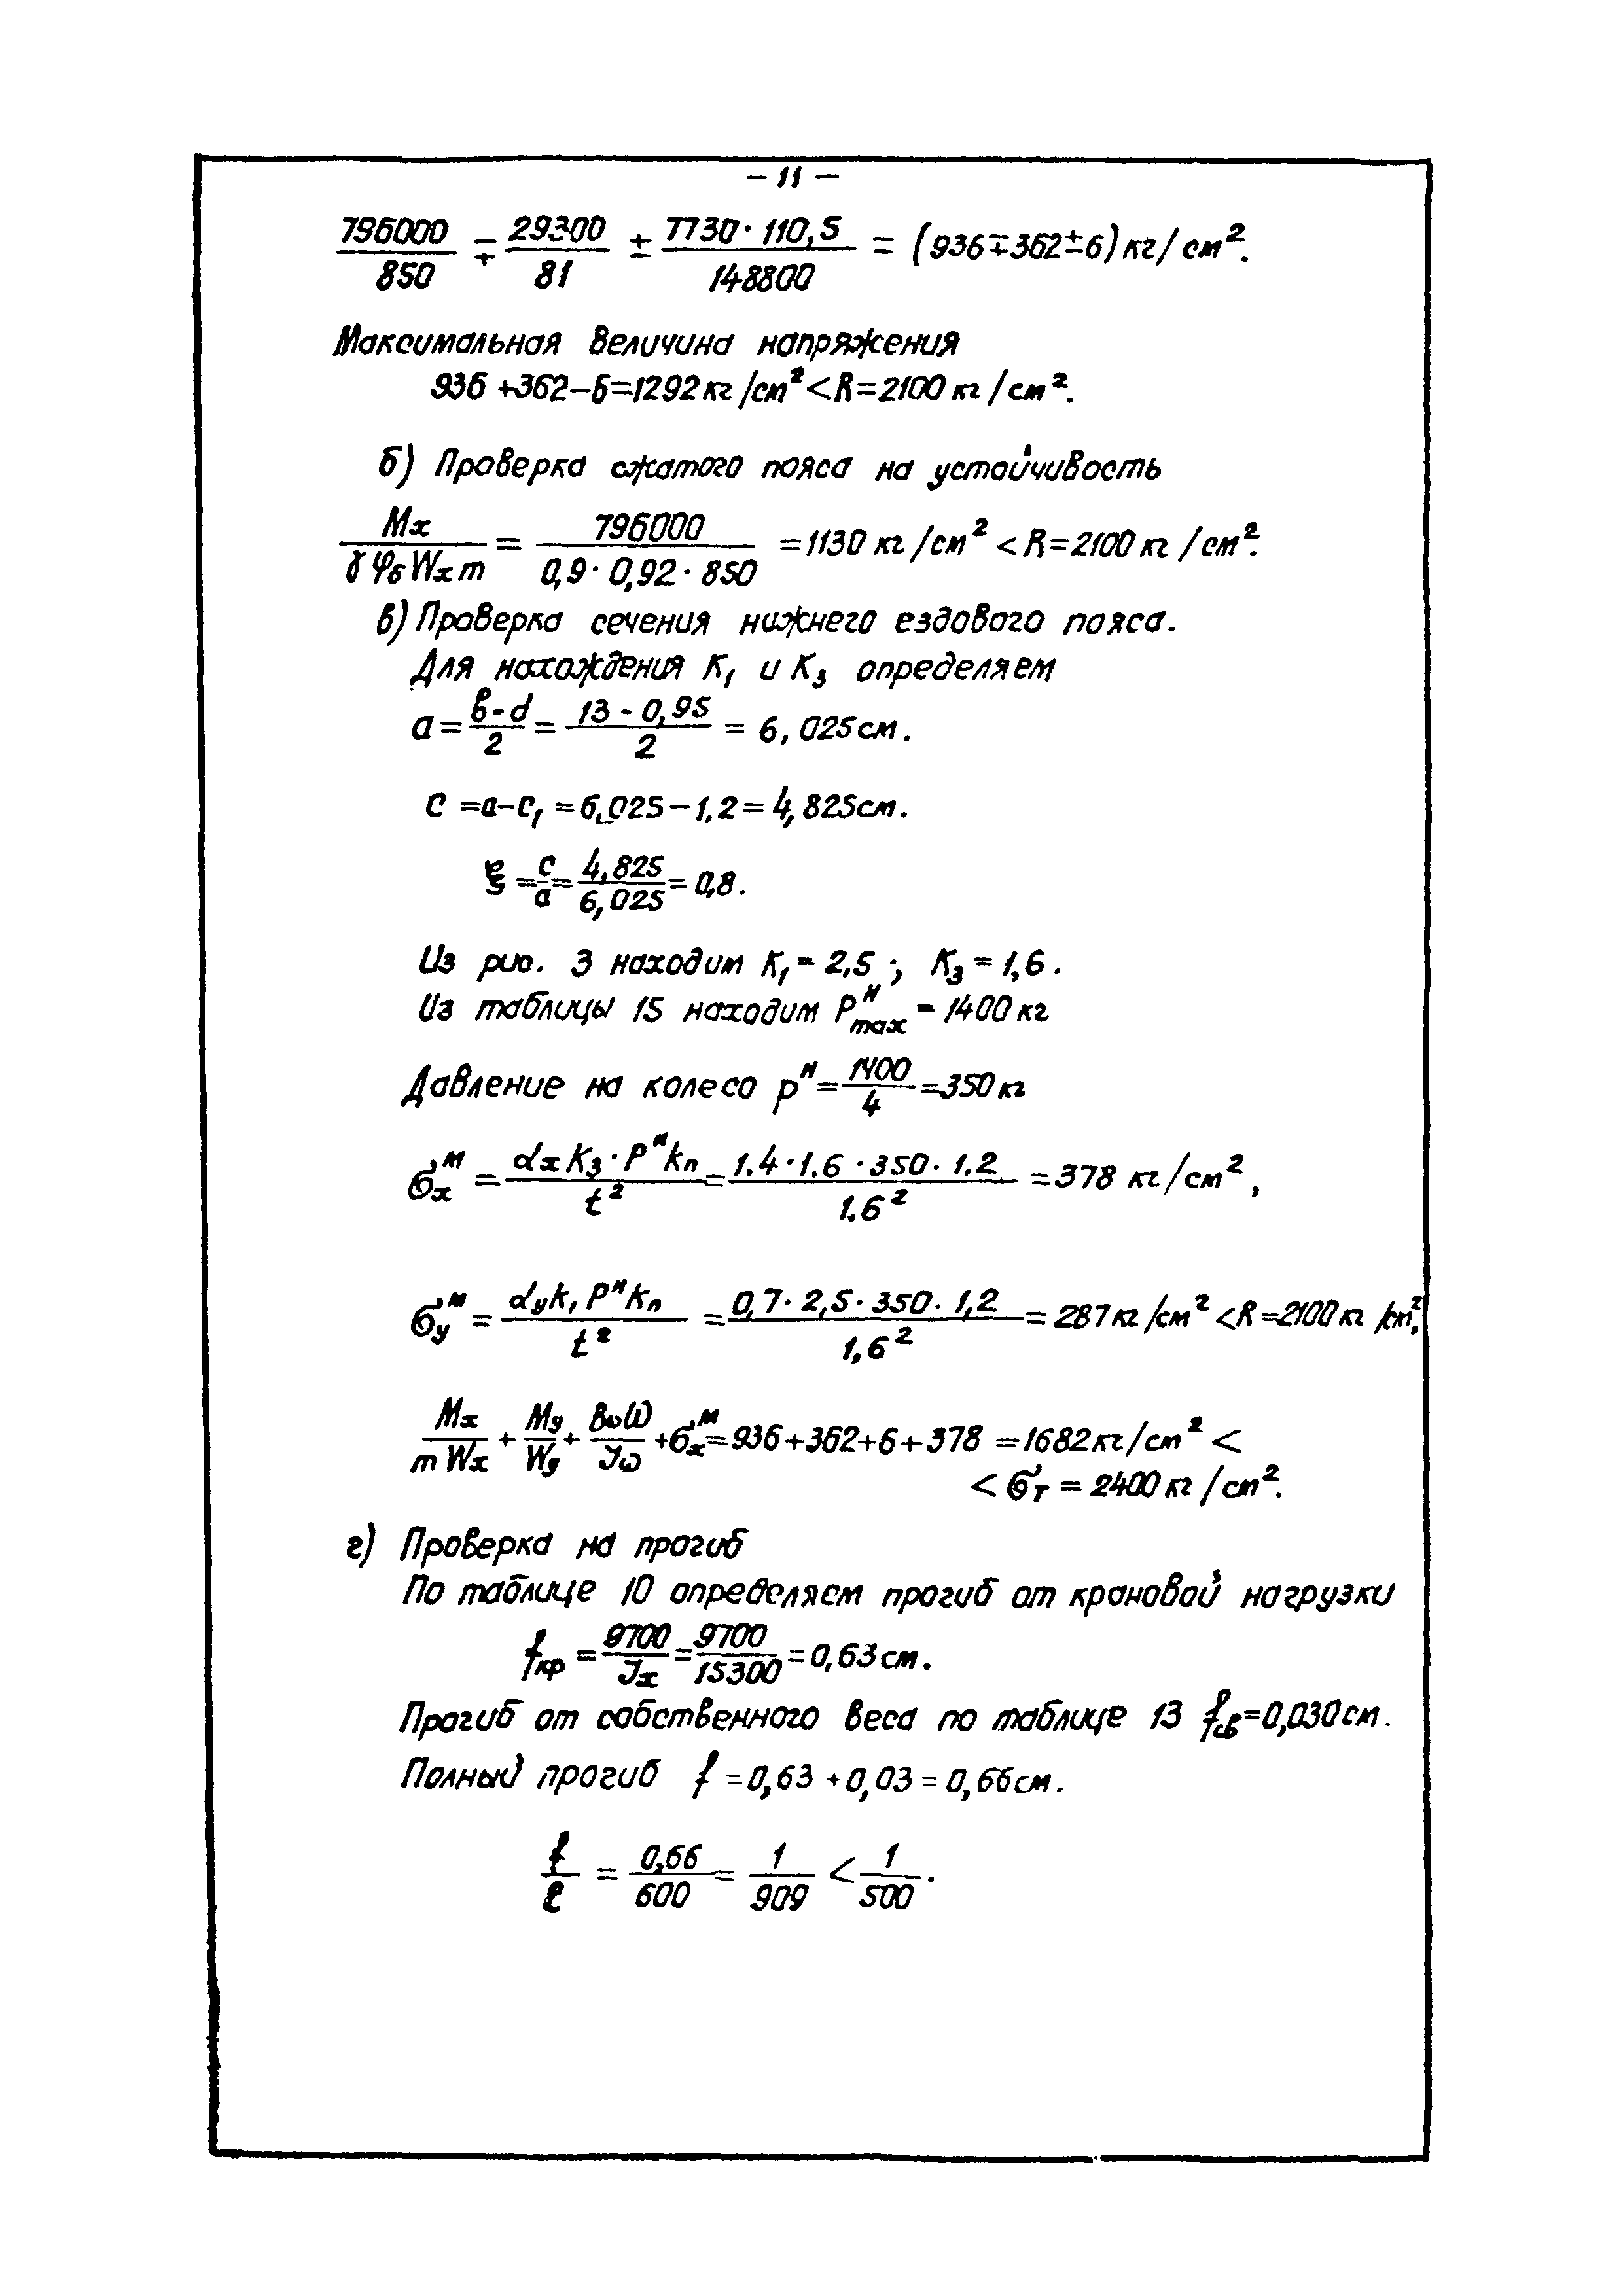 - 11 -
796000/850 ∓ 29300/81 ± 7730·110,5/148800 = (936∓362±6) кг/см².
Максимальная величина напряжения
936+362-6=1292 кг/см² < R=2100 кг/см².
б) Проверка сжатого пояса на устойчивость
Mx/(γ φб Wx m) = 796000/(0,9·0,92·850) = 1130 кг/см² < R=2100 кг/см².
в) Проверка сечения нижнего ездового пояса.
Для нахождения K₁ и K₃ определяем
a = (в-d)/2 = (13-0,95)/2 = 6,025 см.
c = a-c₁ = 6,025-1.2 = 4,825 см.
ξ = c/a = 4,825/6,025 = 0,8.
Из рис. 3 находим K₁ = 2,5; K₃ = 1,6.
Из таблицы 15 находим Pᴴmax = 1400 кг
Давление на колесо Pᴴ = 1400/4 = 350 кг
σxᴹ = αx K₃·Pᴴ kп/t² = 1.4·1.6·350·1.2/1.6² = 378 кг/см²,
σyᴹ = αy k₁ Pᴴ kп/t² = 0,7·2,5·350·1,2/1,6² = 287 кг/см² < R=2100 кг/см²,
Mx/(m Wx) + My/Wy + BωW/Jω + σxᴹ = 936+362+6+378 = 1682 кг/см² <
< σт = 2400 кг/см².
г) Проверка на прогиб
По таблице 10 определяем прогиб от крановой нагрузки
fкр = 9700/Jx = 9700/15300 = 0,63 см.
Прогиб от собственного веса по таблице 13 fсв=0,030 см.
Полный прогиб f = 0,63 + 0,03 = 0,66 см.
f/ℓ = 0,66/600 = 1/909 < 1/500.